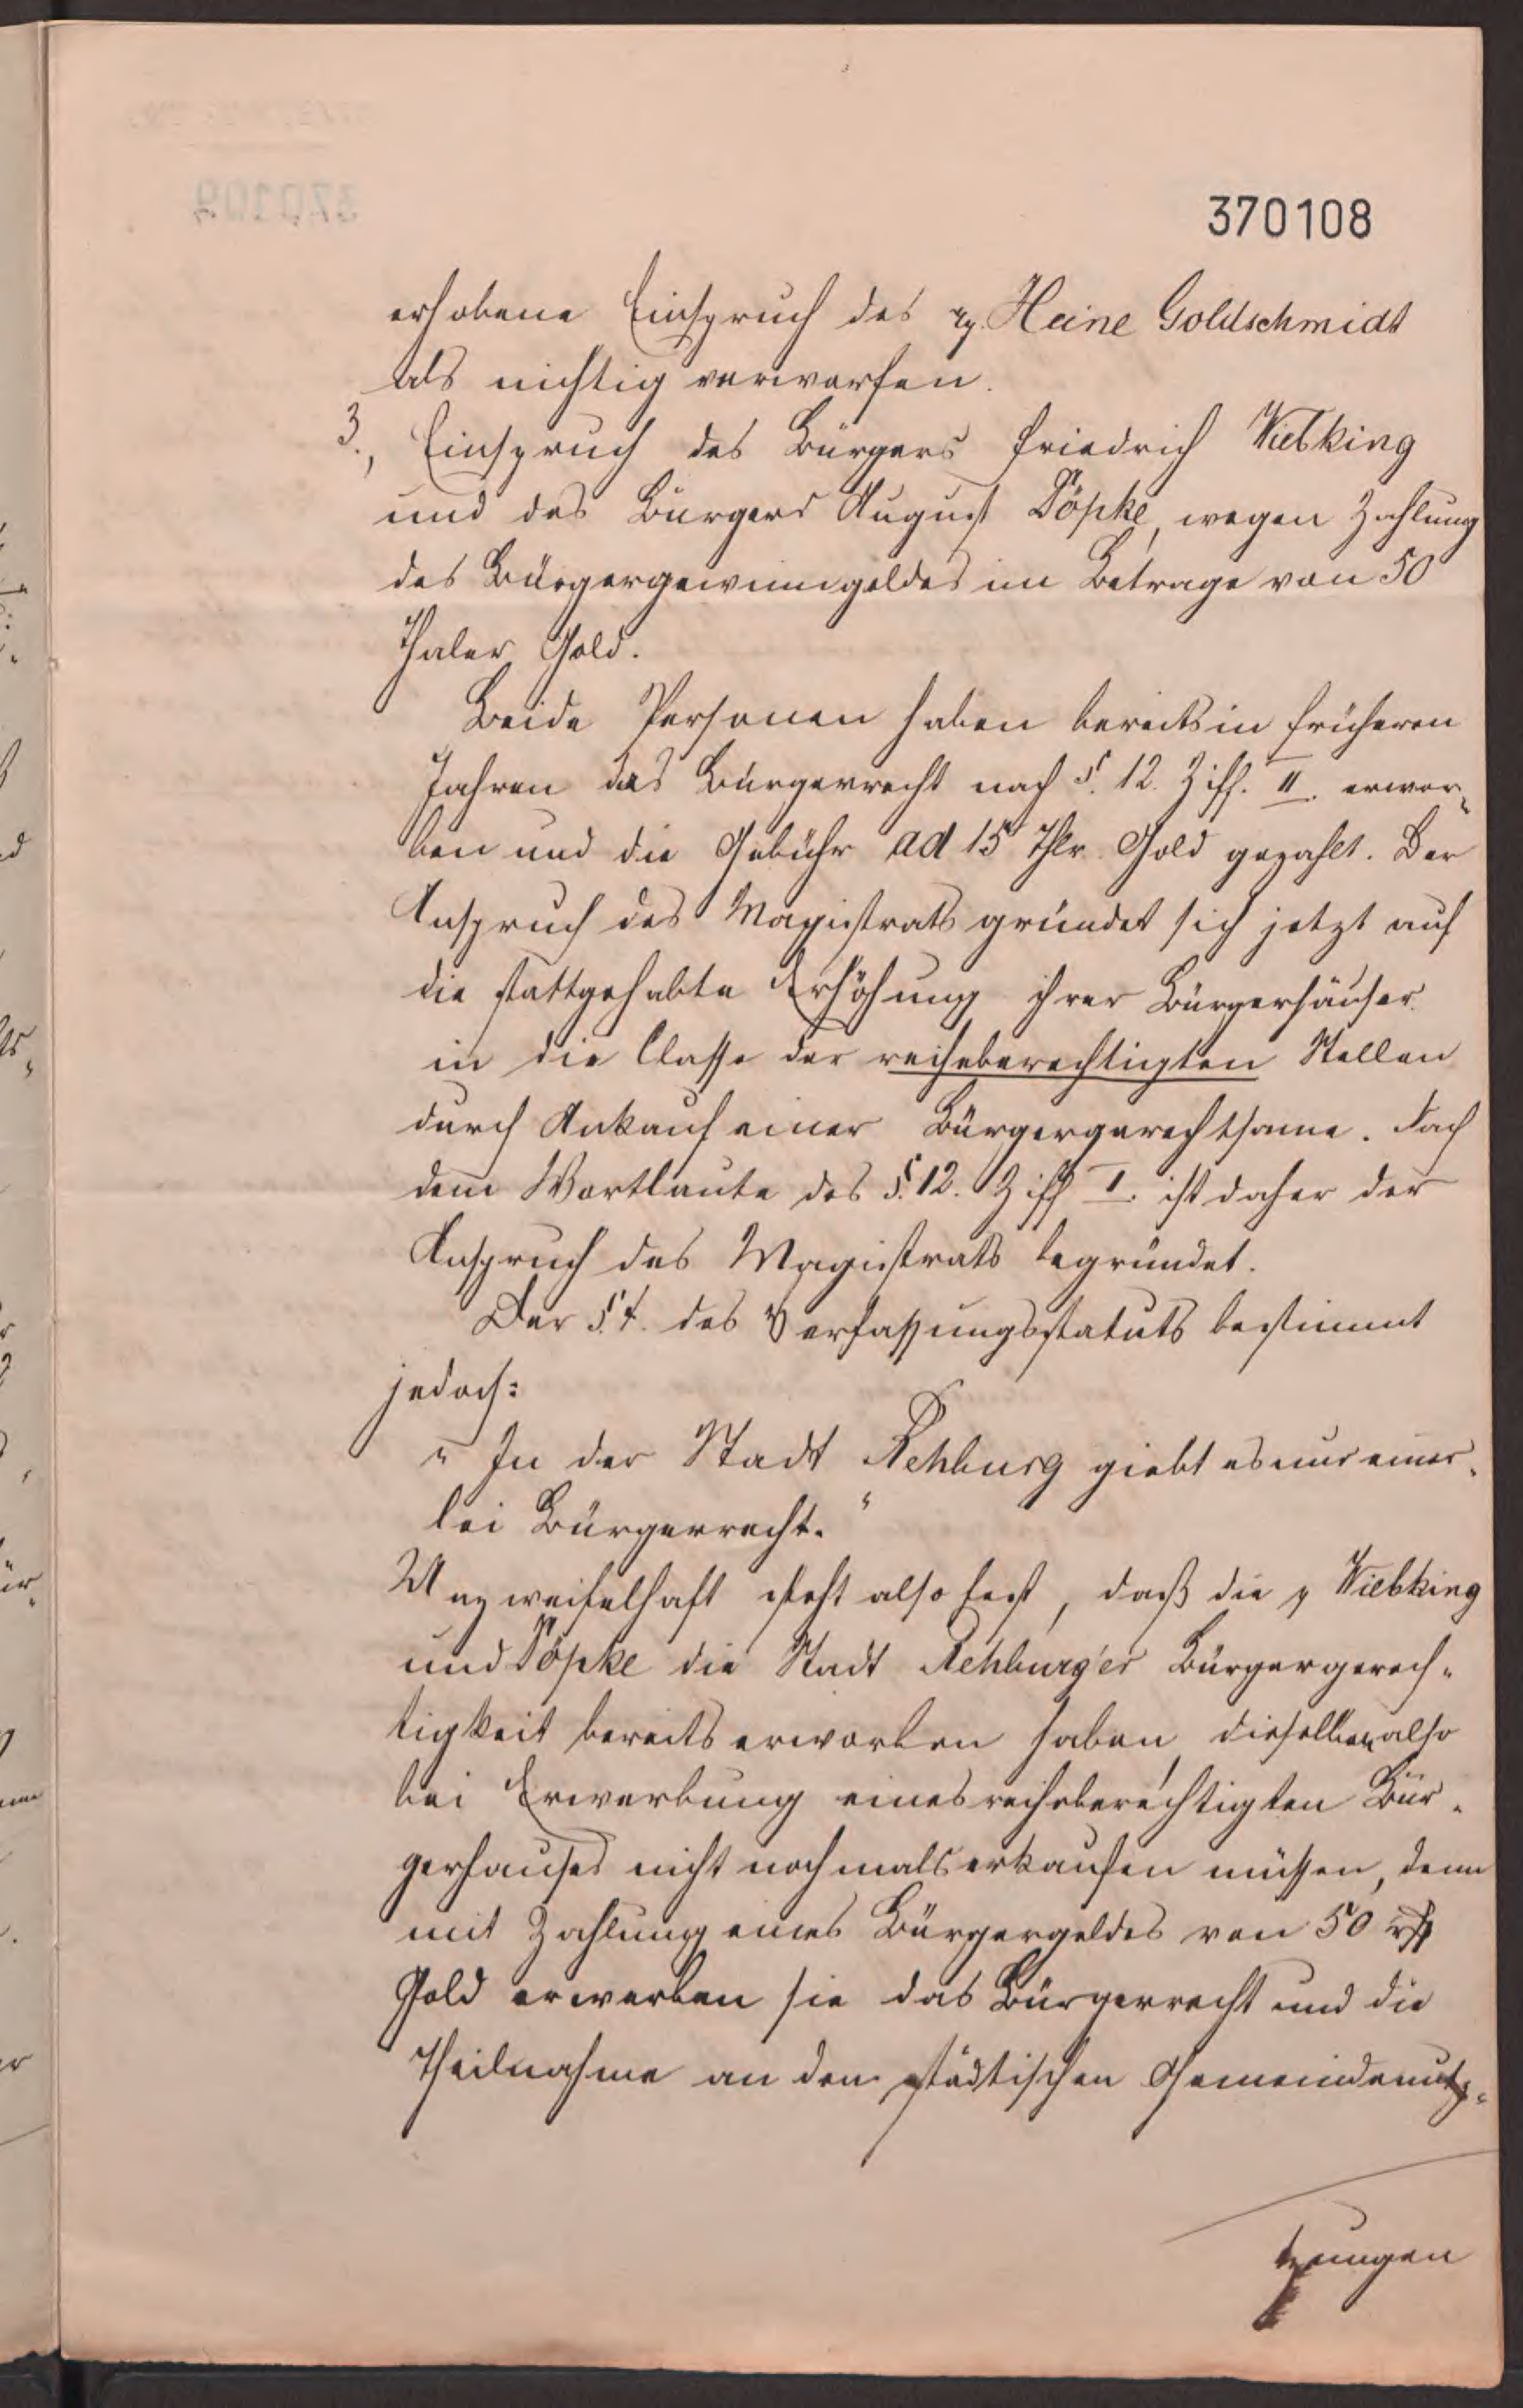 370108
erhobene Einspruch des pp. Heine Goldschmidt
als nichtig verworfen.
3., Einspruch des Bürgers Friedrich Wiebking
und des Bürgers August Döpke, wegen Zahlung
des Bürgergewinngeldes im Betrage von 50
Thaler Gold.
Beide Personen haben bereits in früheren
Jahren das Bürgerrecht nach §. 12. Ziff. II. erwor-
ben und die Gebühr ad 15 Thlr. Gold gezahlt. Der
Anspruch des Magistrats gründet sich jetzt auf
die stattgehabte Erhöhung ihrer Bürgerhäuser
in die Classe der reiheberechtigten Stellen
durch Ankauf einer Bürgergerechtsame. Nach
dem Wortlaute des §. 12. Ziff I. ist daher der
Anspruch des Magistrats begründet.
Der §. 4. des Verfassungsstatuts bestimmt
jedoch:
„In der Stadt Rehburg giebt es nur einer-
lei Bürgerrecht.“
Unzweifelhaft steht also fest, daß die p Wiebking
und Döpke die Stadt Rehburger Bürgergerech-
tigkeit bereits erworben haben, dieselben also
bei Erwerbung eines reiheberechtigten Bür-
gerhauses nicht nochmals erkaufen müssen, denn
mit Zahlung eines Bürgergeldes von 50 rthl
Gold erwerben sie das Bürgerrecht und die
Theilnahme an den städtischen Gemeindenutz-
zungen